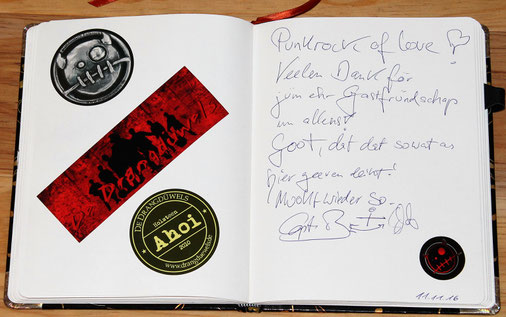 De Drangdüwels
DE DRANGDÜWELS
Holsteen
Ahoi
2010
www.drangduewels.de
Punkrock of love!
Veelen Dank för
jum ehr Gastfründschap
un allens!
Goot, dat dat sowat as
hier geeven deit!
Mookt wieder so.
11.11.16